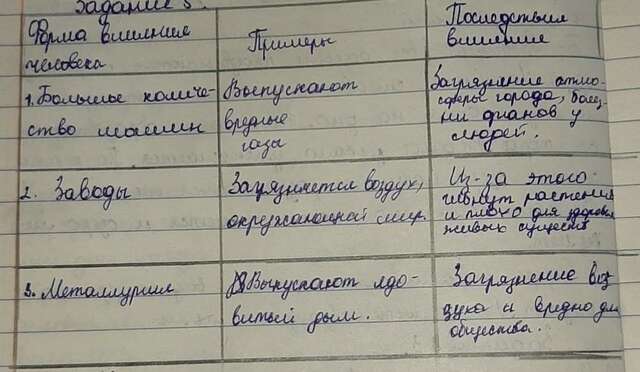 Задание 3.
Форма влияния
человека
Примеры
Последствия
влияния
1. Большое количе-
ство машин
Выпускают
вредные
газы
Загрязнение атмо-
сферы города, болез
ни у
людей.
2. Заводы
Загрязняется воздух,
окружающий мир.
Из-за этого
гибнут растения
и плохо для здоровья
живых существ
3. Металлургия
Выпускают ядо-
витый дым.
Загрязнение воз
духа и вредно для
общества.